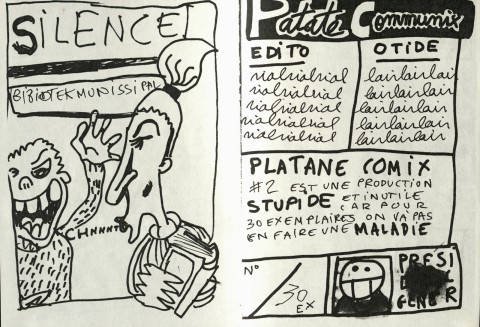 SILENCE
BIBIOTEKMUNISSIPAL
CHHHHTO
Patate Communix
EDITO
rialrialrial
rialrialrial
rialrialrial
rialrialrial
rialrialrial
OTIDE
lairlairlair
lairlairlair
lairlairlair
lairlairlair
lairlairlair
PLATANE COMIX
#2 EST UNE PRODUCTION
STUPIDE ET INUTILE
CAR POUR
30 EXEMPLAIRES ON VA PAS
EN FAIRE UNE MALADIE
N° / 30
EX
PRESI
GENER